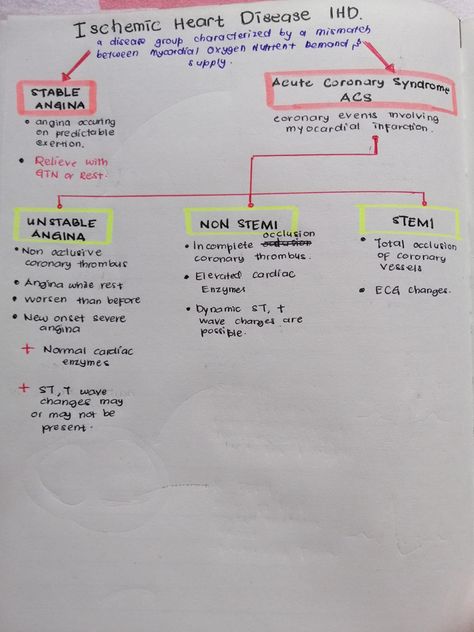 Ischemic Heart Disease IHD.
a disease group characterized by a mismatch
between myocardial oxygen nutrient demand &
supply.
STABLE
ANGINA
• angina occuring
on predictable
exertion.
• Relieve with
GTN or Rest.
Acute Coronary Syndrome
ACS
coronary events involving
myocardial infarction.
UNSTABLE
ANGINA
• Non occlusive
coronary thrombus
• Angina while rest
• worsen than before
• New onset severe
angina
+ Normal cardiac
enzymes
+ ST, T wave
changes may
or may not be
present.
NON STEMI
• Incomplete occlusion
coronary thrombus.
• Elevated cardiac
Enzymes
• Dynamic ST, T
wave changes are
possible.
STEMI
• Total occlusion
of coronary
vessels
• ECG changes.